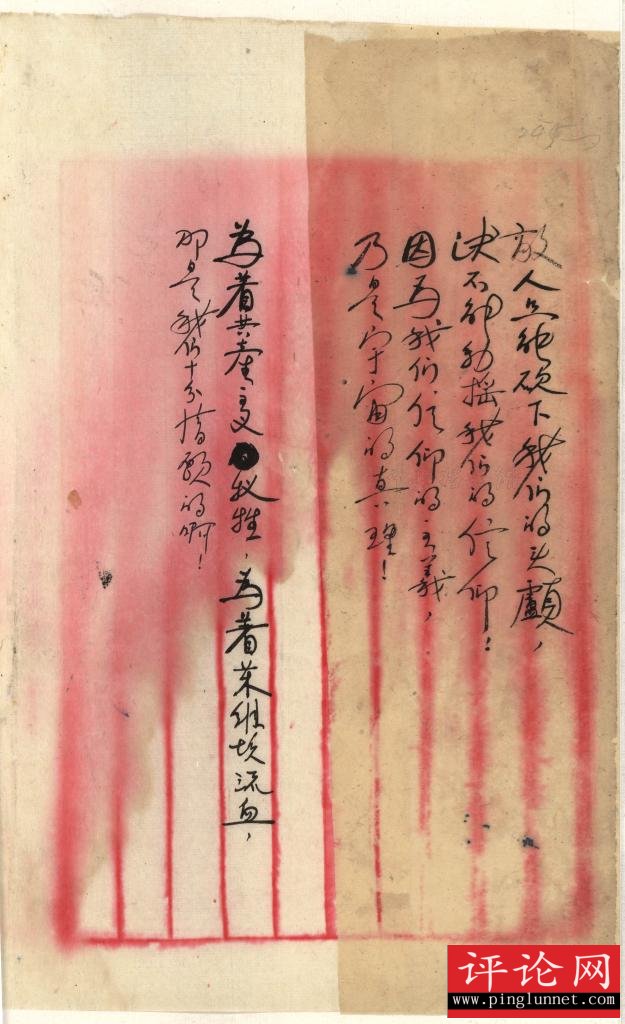 敌人只能砍下我们的头颅，
决不能动摇我们的信仰！
因为我们信仰的主义，
乃是宇宙的真理！
为着共产主义牺牲，为着苏维埃流血，
那是我们十分情愿的啊！
评论网
www.pinglunnet.com